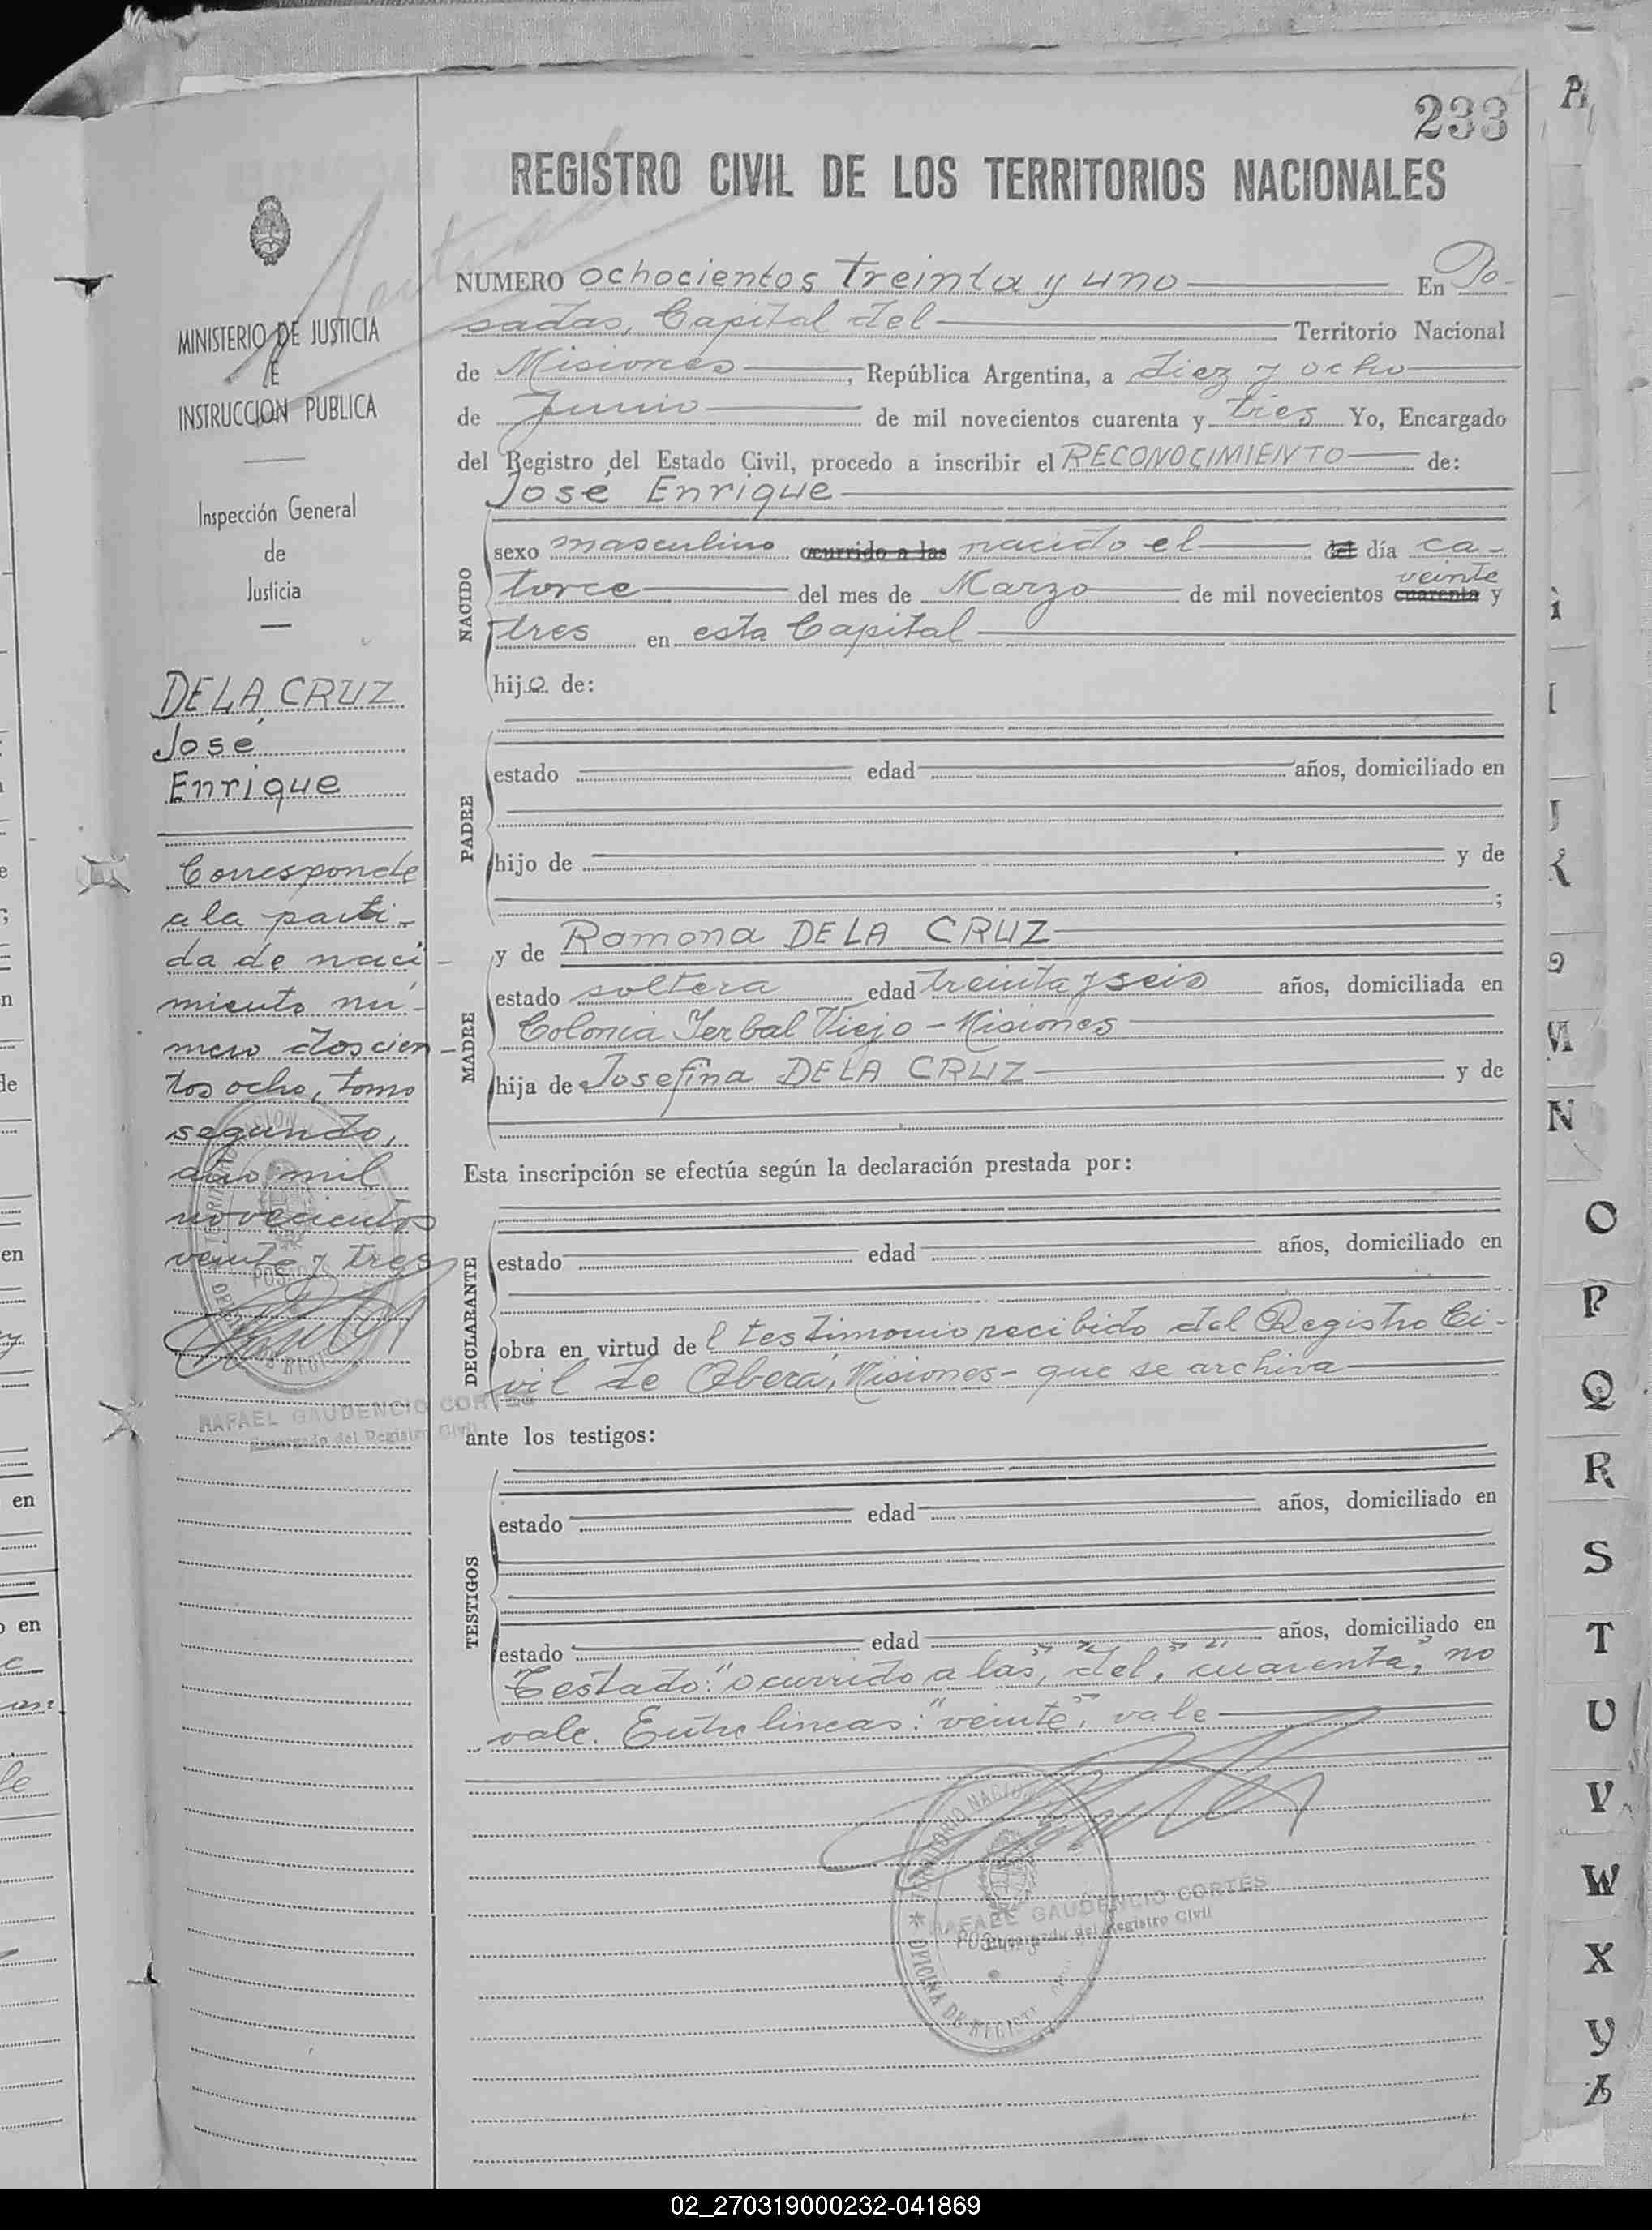 233
REGISTRO CIVIL DE LOS TERRITORIOS NACIONALES
MINISTERIO DE JUSTICIA
E
INSTRUCCION PUBLICA
Inspección General
de
Justicia
DE LA CRUZ
José
Enrique
Corresponde
a la parti-
da de naci-
miento nú-
mero doscien-
tos ocho, tomo
segundo,
año mil
novecientos
veinte y tres
RAFAEL GAUDENCIO CORTES
Encargado del Registro Civil
NUMERO ochocientos treinta y uno En Po-
sadas, Capital del Territorio Nacional
de Misiones, República Argentina, a diez y ocho
de Junio de mil novecientos cuarenta y tres Yo, Encargado
del Registro del Estado Civil, procedo a inscribir el RECONOCIMIENTO de:
José Enrique
NACIDO
sexo masculino ocurrido a las nacido el del día ca-
torce del mes de Marzo de mil novecientos cuarenta veinte y
tres en esta Capital
hijo de:
PADRE
estado edad años, domiciliado en
hijo de y de
;
MADRE
y de Ramona DE LA CRUZ
estado soltera edad treinta y seis años, domiciliada en
Colonia Yerbal Viejo - Misiones
hija de Josefina DE LA CRUZ y de
Esta inscripción se efectúa según la declaración prestada por:
DECLARANTE
estado edad años, domiciliado en
obra en virtud del testimonio recibido del Registro Ci-
vil de Oberá, Misiones - que se archiva
ante los testigos:
TESTIGOS
estado edad años, domiciliado en
estado edad años, domiciliado en
Testado: "ocurrido a las", "del", "cuarenta", no
vale. Entre lineas: "veinte", vale
TERRITORIO NACIONAL
POSADAS
OFICINA DE REGISTRO
RAFAEL GAUDENCIO CORTÉS
Encargado del Registro Civil
N
O
P
Q
R
S
T
U
V
W
X
Y
Z
02_270319000232-041869